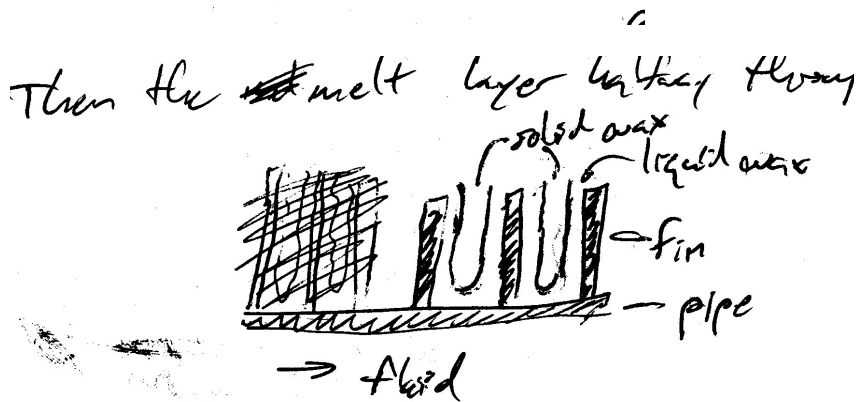 Then the melt layer halfway through
solid wax
liquid wax
fin
pipe
fluid